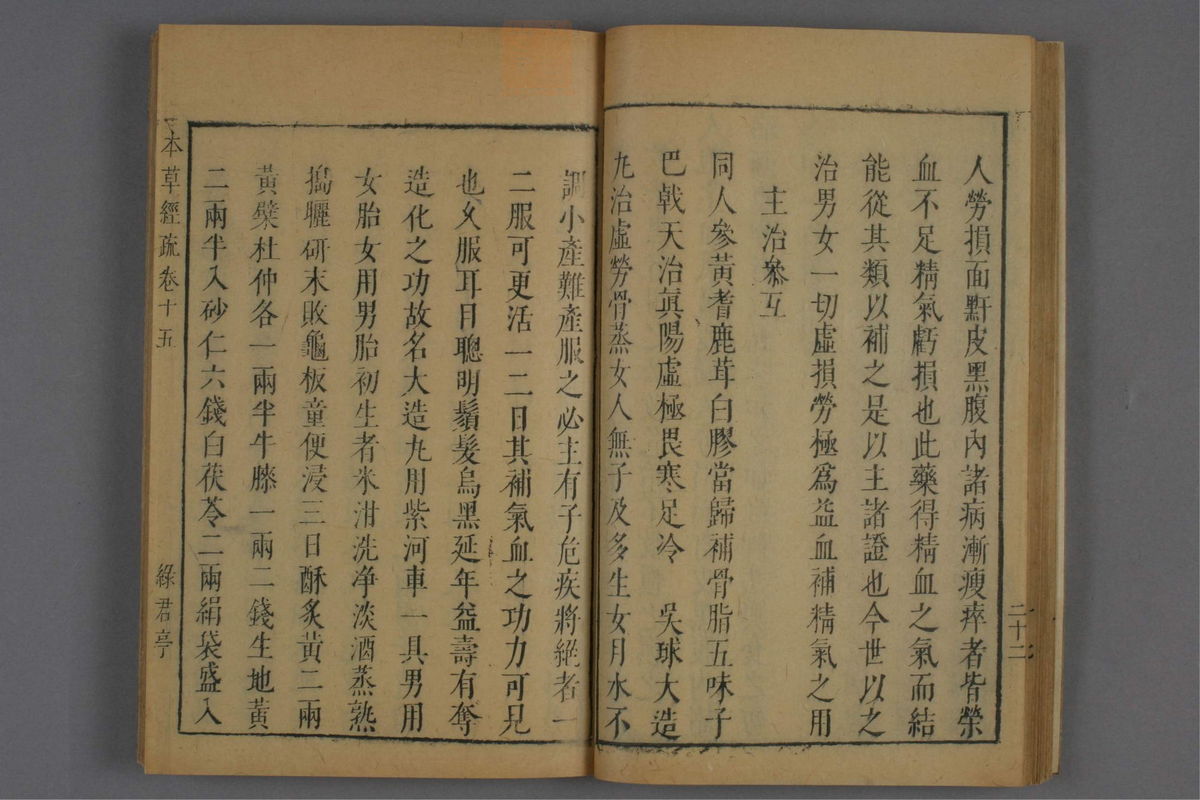 人勞損面䵟皮黑腹內諸病漸瘦瘁者皆榮
血不足精氣虧損也此藥得精血之氣而結
能從其類以補之是以主諸證也今世以之
治男女一切虛損勞極爲益血補精氣之用
主治參互
同人參黃耆鹿茸白膠當歸補骨脂五味子
巴戟天治眞陽虛極畏寒足冷　吳球大造
丸治虛勞骨蒸女人無子及多生女月水不
二十二
調小產難產服之必主有子危疾將絕者一
二服可更活一二日其補氣血之功力可見
也久服耳目聰明鬚髮烏黑延年益壽有奪
造化之功故名大造丸用紫河車一具男用
女胎女用男胎初生者米泔洗净淡酒蒸熟
搗曬研末敗龜板童便浸三日酥炙黃二兩
黃檗杜仲各一兩半牛膝一兩二錢生地黃
二兩半入砂仁六錢白茯苓二兩絹袋盛入
本草經疏卷十五
綠君亭